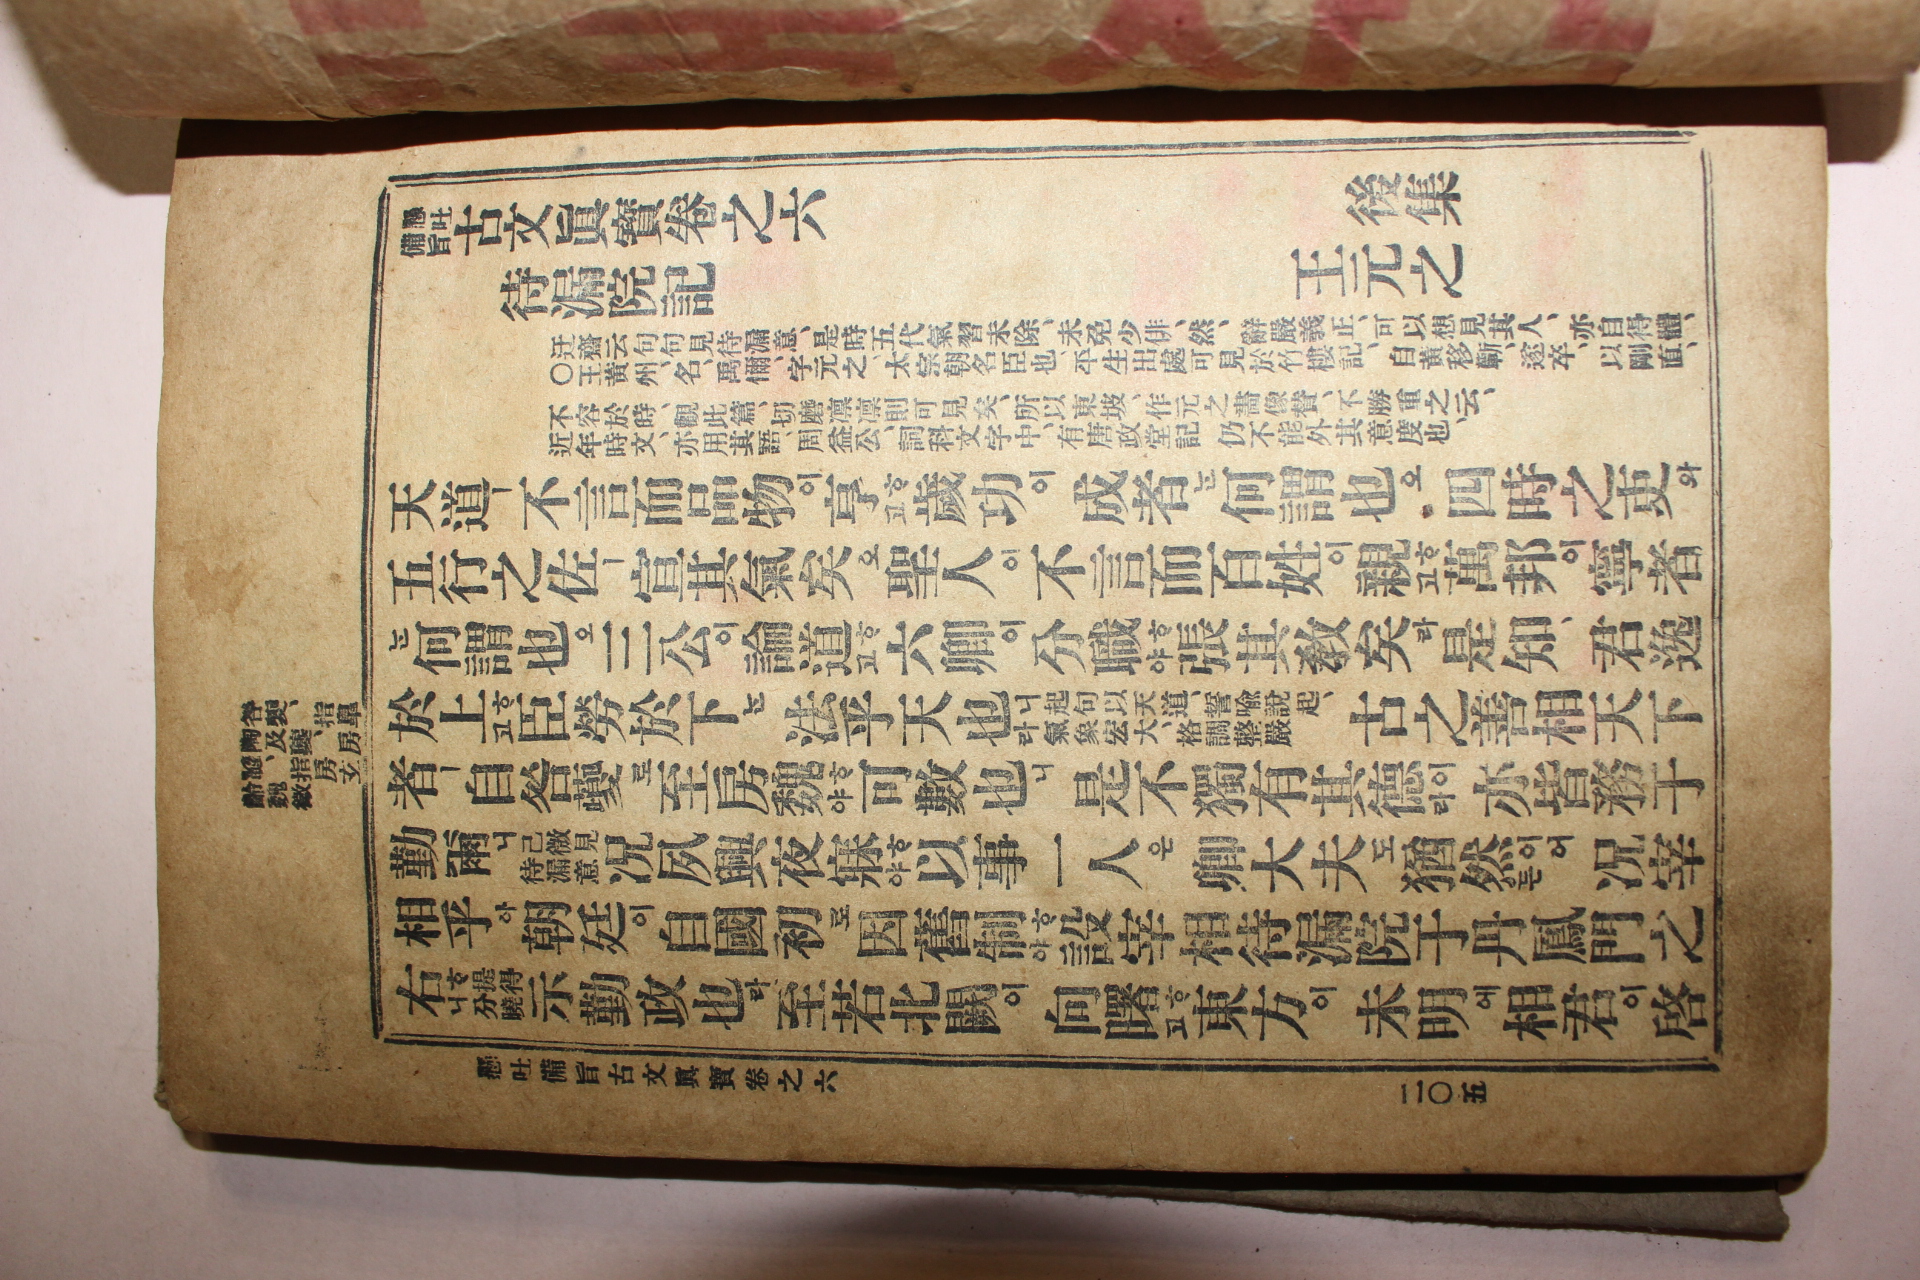 懸吐備旨古文眞寶卷之六 後集
待漏院記 王元之
迂齋云句句見待漏意、是時五代氣習未除、未免少俳、然、辭嚴義正、可以想見其人、亦自得體、
〇王黃州、名、禹偁、字元之、太宗朝名臣也、平生出處可見於竹樓記、自黃移蘄、遂卒、以剛直、
不容於時、觀此篇、切磨凛凛則可見矣、所以東坡、作元之畵像贊、不勝重之云、
近年時文、亦用其語、周益公、詞科文字中、有唐政堂記 仍不能外其意度也、
天道ㅣ不言而品物이亨ᄒᆞ고歲功이 成者ᄂᆞᆫ何謂也오 四時之吏와
五行之佐ㅣ宣其氣矣오 聖人이 不言而百姓이親ᄒᆞ고萬邦이寧者
ᄂᆞᆫ何謂也오 三公이論道ᄒᆞ고六卿이 分職ᄒᆞ야張其敎矣라是知、君逸
於上ᄒᆞ고臣勞於下ᄂᆞᆫ 法乎天也니라起句以天道、誓喩說起、氣象宏大、格調整嚴 古之善相天下
者ㅣ自咎夔로至房魏ᄒᆞ야可數也니 是不獨有其德이라亦皆務于
勤爾니已微見待漏意况夙興夜寐ᄒᆞ야以事一人은 卿大夫도猶然이어든 况宰
相乎아朝廷이自國初로因舊制ᄒᆞ야設宰相待漏院于丹鳳門之
右ᄒᆞ니提得分曉示勤政也라至若北闕이 向曙ᄒᆞ고東方이 未明에相君이啓
咎夔、指皐
陶及夔、房
魏、指房玄
齡魏徵
懸吐備旨古文眞寶卷之六
二〇五